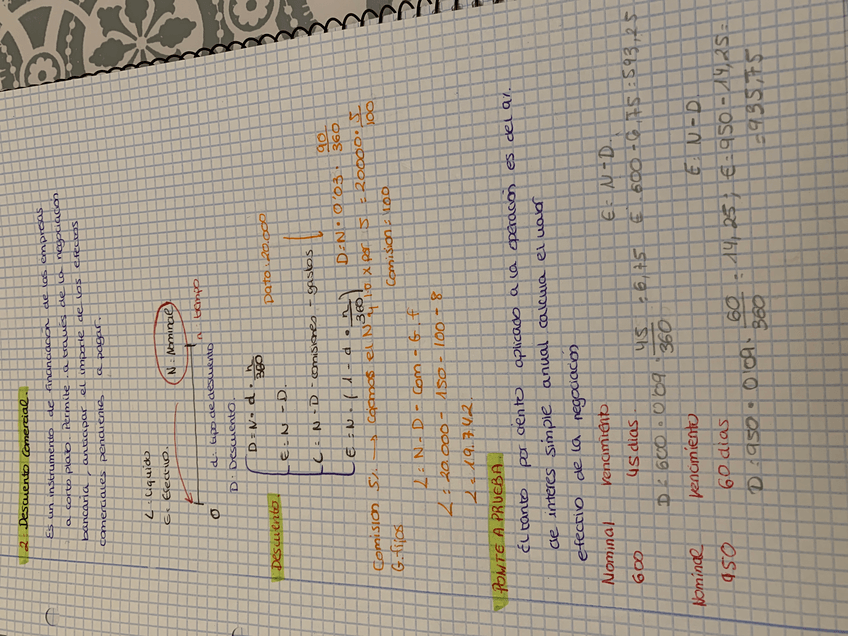 2. Descuento Comercial.
Es un instrumento de financiación de las empresas
a corto plazo. Permite a través de la negociación
bancaria, anticipar el importe de los efectos
comerciales pendientes a pagar.
L: Líquido
E: Efectivo.
N: Nominal
0
n tiempo
d: tipo de descuento
D: Descuento.
Descuento.
D = N · d · n/360
E = N - D.
L = N - D - comisiones - gastos
E = N · (1 - d · n/360)
Dato: 20.000
D = N · 0'03 · 90/360
Comision 5% → cogemos el Nº y lo x por 5 = 20000 · 5/100
G. fijos
Comision = 100
L = N - D - Com - G f
L = 20.000 - 150 - 100 - 8
L = 19.742
PONTE A PRUEBA.
El tanto por ciento aplicado a la operación es del 9%.
de interes simple anual calcula el valor
efectivo de la negociación
Nominal vencimiento
600 45 dias
E = N - D.
D = 600 · 0'09 · 45/360 = 6,75 E = 600 - 6,75 = 593,25
Nominal vencimiento
950 60 dias
E = N - D.
D = 950 · 0'09 · 60/360 = 14,25; E = 950 - 14,25 =
= 935,75